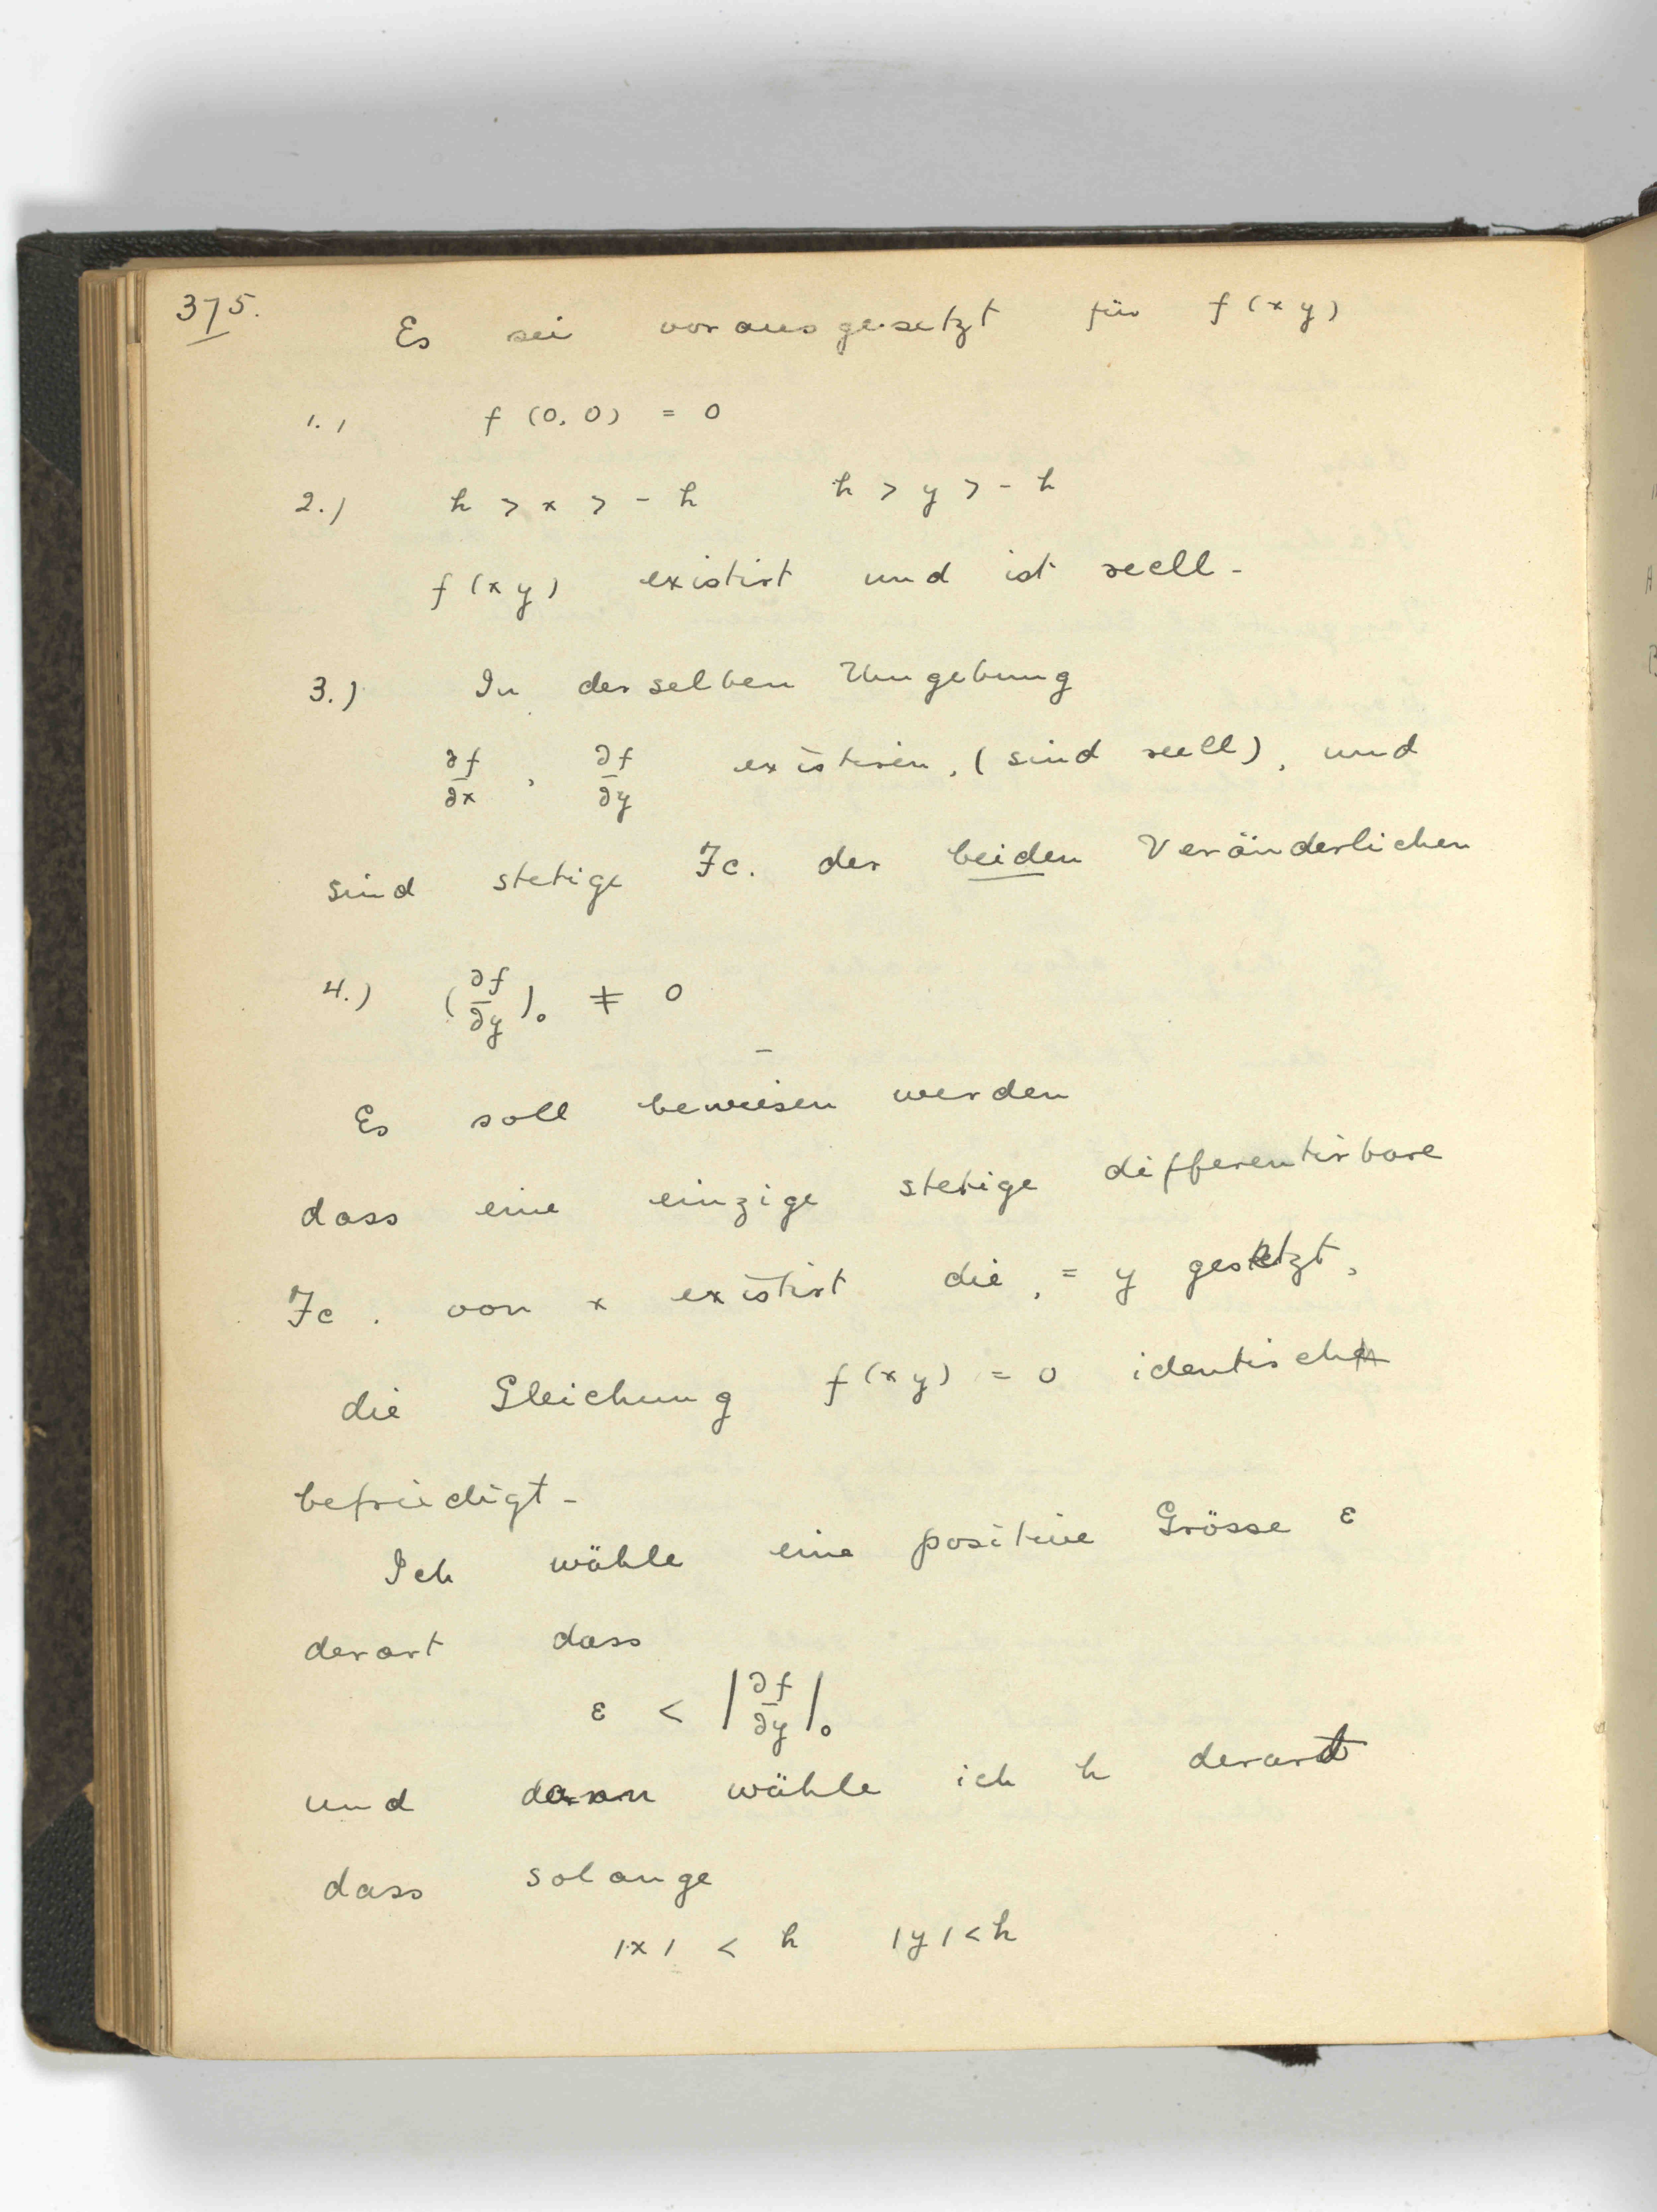 375.
Es sei vorausgesetzt für f(xy)
1.) f(0,0) = 0
2.) h > x > - h h > y > - h
f(xy) existirt und ist reell -
3.) In derselben Umgebung
∂f/∂x , ∂f/∂y existiren, (sind reell), und
sind stetige Fc. der beiden Veränderlichen
4.) (∂f/∂y)₀ ≠ 0
Es soll bewiesen werden
dass eine einzige stetige differentirbare
Fc. von x existirt die, = y gesetzt,
die Gleichung f(xy) = 0 identisch
befriedigt -
Ich wähle eine positive Grösse ε
derart dass
ε < |∂f/∂y|₀
und dann wähle ich h derart
dass solange
|x| < h |y| < h